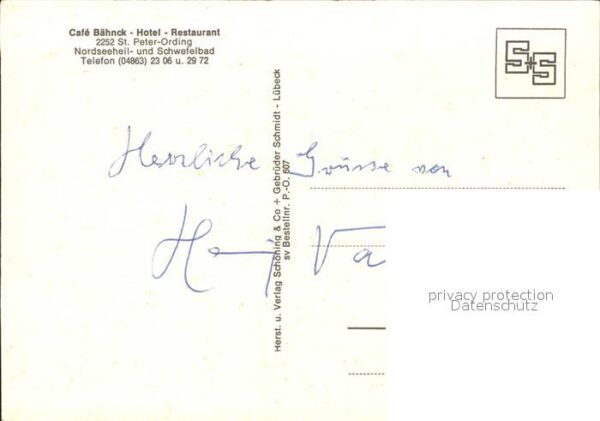 Café Bähnck - Hotel - Restaurant
2252 St. Peter-Ording
Nordseeheil- und Schwefelbad
Telefon (04863) 23 06 u. 29 72
S+S
Herst. u. Verlag Schöning & Co + Gebrüder Schmidt - Lübeck
sv Bestellnr. P.-O. 607
Herzliche Grüsse von
Va
privacy protection
Datenschutz